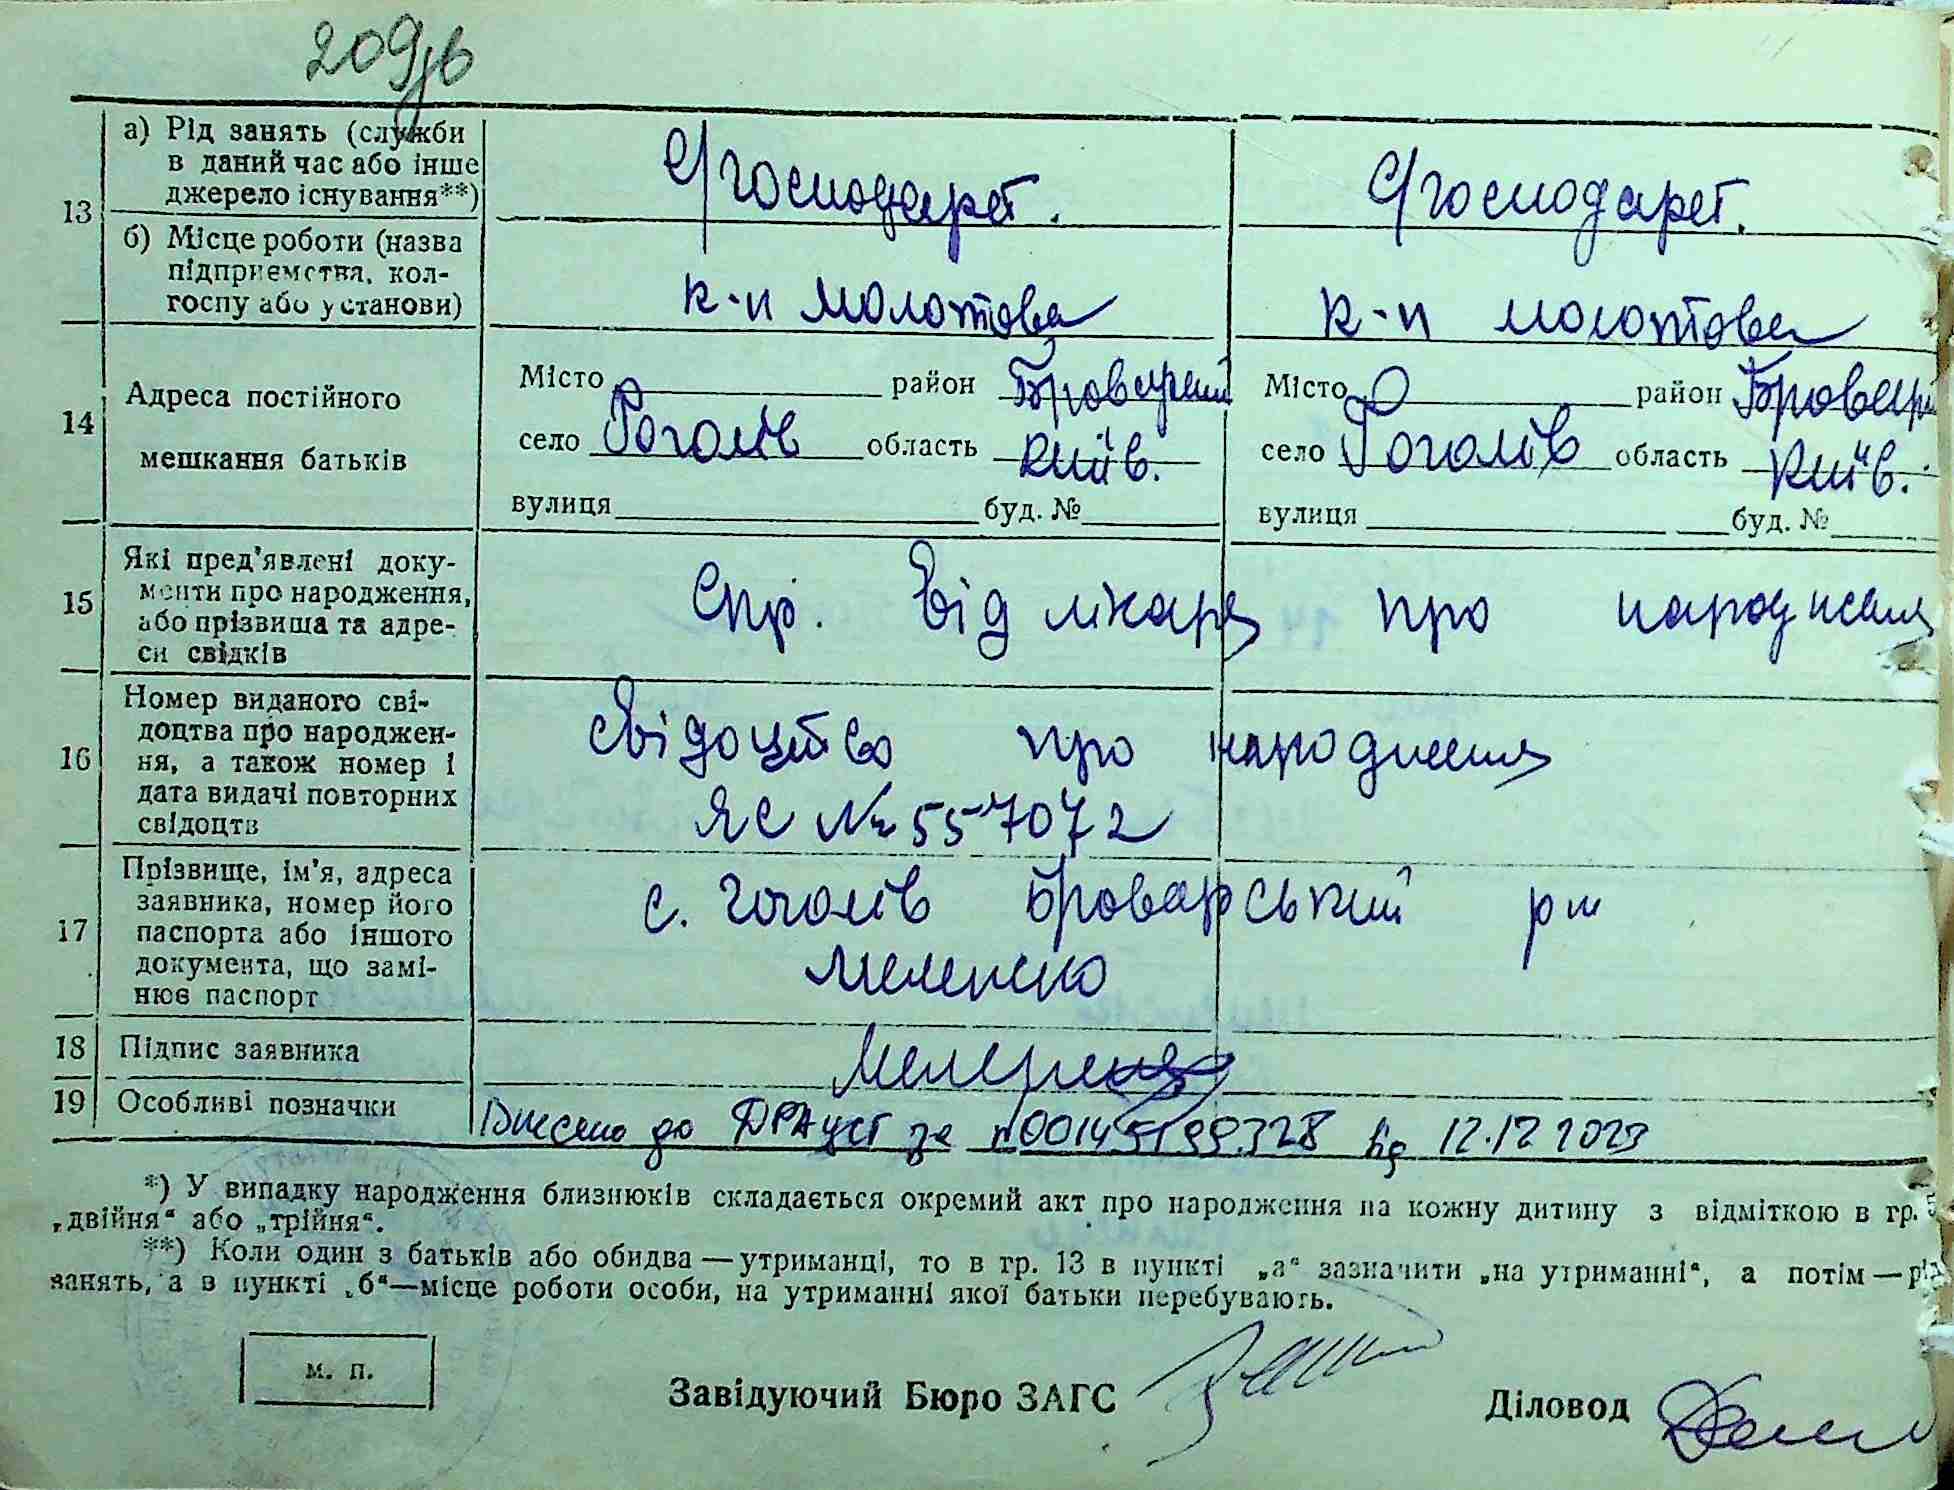 209зв
а) Рід занять (служби
в даний час або інше
джерело існування**)
С/господарст.
С/господарст.
13
б) Місце роботи (назва
підприємства, кол-
госпу або установи)
к-п Молотова
к-п Молотова
14
Адреса постійного
мешкання батьків
Місто район Броварський
село Гоголів область Київ.
вулиця буд. №
Місто район Бровар
село Гоголів область Київ.
вулиця буд. №
15
Які пред'явлені доку-
менти про народження,
або прізвища та адре-
си свідків
Спр. від лікаря про народження
16
Номер виданого сві-
доцтва про народжен-
ня, а також номер і
дата видачі повторних
свідоцтв
Свідоцтво про народження
ЯС № 557072
17
Прізвище, ім'я, адреса
заявника, номер його
паспорта або іншого
документа, що замі-
нює паспорт
с. Гоголів Броварський р-н
18 Підпис заявника
19 Особливі позначки
Внесено до ДРАЦСГ за №00145199328 від 12.12 2023
*) У випадку народження близнюків складається окремий акт про народження на кожну дитину з відміткою в гр. 5
„двійня“ або „трійня“.
**) Коли один з батьків або обидва — утриманці, то в гр. 13 в пункті „а“ зазначити „на утриманні“, а потім — рід
занять, а в пункті „б“—місце роботи особи, на утриманні якої батьки перебувають.
м. п.
Завідуючий Бюро ЗАГС
Діловод